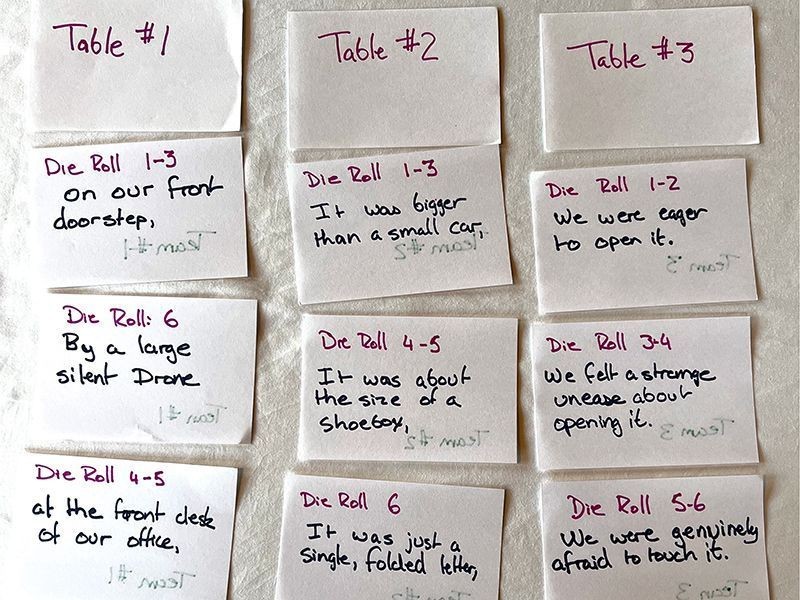 Table #1
Die Roll 1-3
on our front
doorstep,
Team #1
Die Roll: 6
By a large
silent Drone
Team #1
Die Roll 4-5
at the front desk
of our office,
Team #1
Table #2
Die Roll 1-3
It was bigger
than a small car,
Team #2
Die Roll 4-5
It was about
the size of a
shoebox,
Team #2
Die Roll 6
It was just a
single, folded letter,
Team #2
Table #3
Die Roll 1-2
We were eager
to open it.
Team 3
Die Roll 3-4
We felt a strange
unease about
opening it.
Team 3
Die Roll 5-6
We were genuinely
afraid to touch it.
Team 3